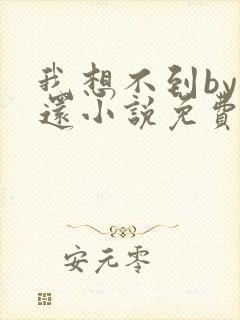 我想不到by
还小說免費
安元零